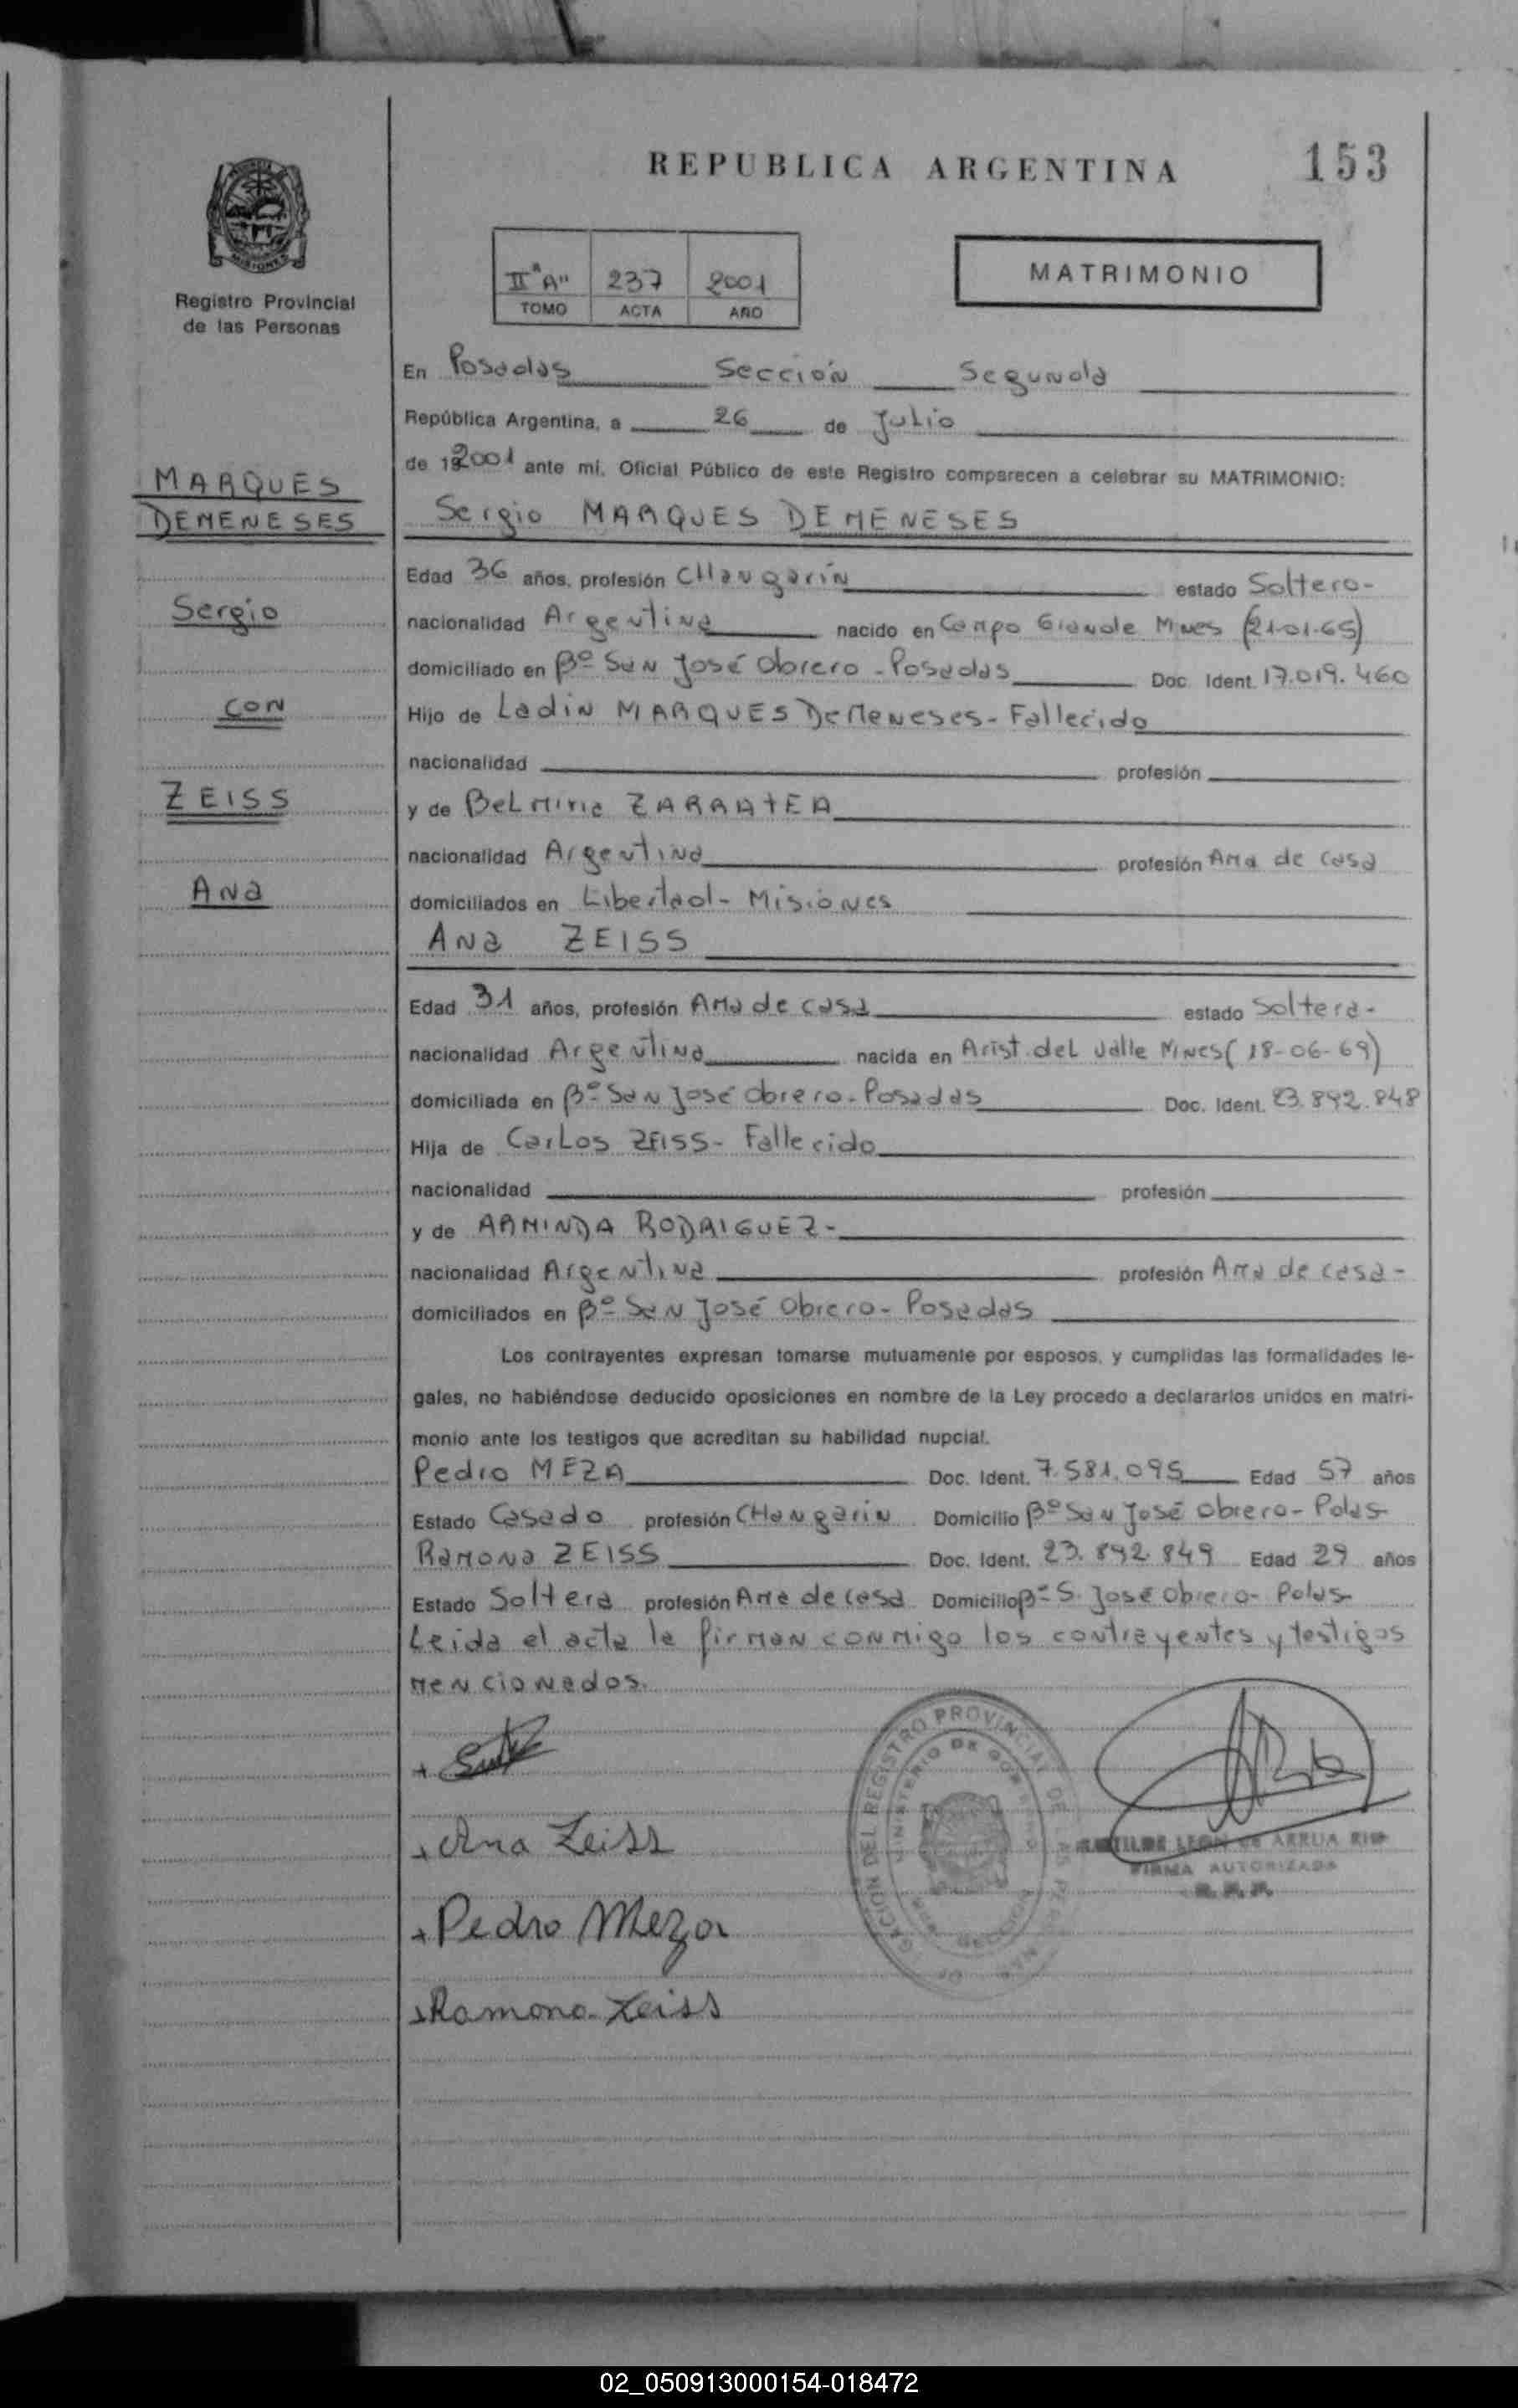 REPUBLICA ARGENTINA
153
Registro Provincial
de las Personas
II "A" 237 2001
TOMO ACTA AÑO
MATRIMONIO
En Posadas Sección Segunda
República Argentina, a 26 de Julio
de 192001 ante mi, Oficial Público de este Registro comparecen a celebrar su MATRIMONIO:
MARQUES
DEMENESES
Sergio
con
ZEISS
Ana
Sergio MARQUES DEMENESES
Edad 36 años, profesión CHangarín estado Soltero-
nacionalidad Argentina nacido en Campo Grande Mnes (21-01-65)
domiciliado en Bº San José Obrero - Posadas Doc. Ident. 17.019.460
Hijo de Ladin MARQUES DeMeneses - Fallecido
nacionalidad profesión
y de Belmiria ZARRATEA
nacionalidad Argentina profesión Ama de casa
domiciliados en Libertad - Misiones
Ana ZEISS
Edad 31 años, profesión Ama de casa estado Soltera-
nacionalidad Argentina nacida en Arist. del Valle Mnes (18-06-69)
domiciliada en Bº San José Obrero - Posadas Doc. Ident. 23.892.848
Hija de Carlos ZEISS - Fallecido
nacionalidad profesión
y de ARMINDA RODRIGUEZ-
nacionalidad Argentina profesión Ama de casa-
domiciliados en Bº San José Obrero - Posadas
Los contrayentes expresan tomarse mutuamente por esposos, y cumplidas las formalidades le-
gales, no habiéndose deducido oposiciones en nombre de la Ley procedo a declararlos unidos en matri-
monio ante los testigos que acreditan su habilidad nupcial.
Pedro MEZA Doc. Ident. 7.581.095 Edad 57 años
Estado Casado profesión CHangarín Domicilio Bº San José Obrero - Pdas
Ramona ZEISS Doc. Ident. 23.892.849 Edad 29 años
Estado Soltera profesión Ama de casa Domicilio Bº S. José Obrero - Pdas
Leida el acta la firman conmigo los contrayentes y testigos
mencionados.
Ana Zeiss
Pedro Meza
Ramona Zeiss
DEL REGISTRO PROVINCIAL DE LAS
MINISTERIO DE GOBIERNO
LEON DE ARRUA
FIRMA AUTORIZADA
02_050913000154-018472